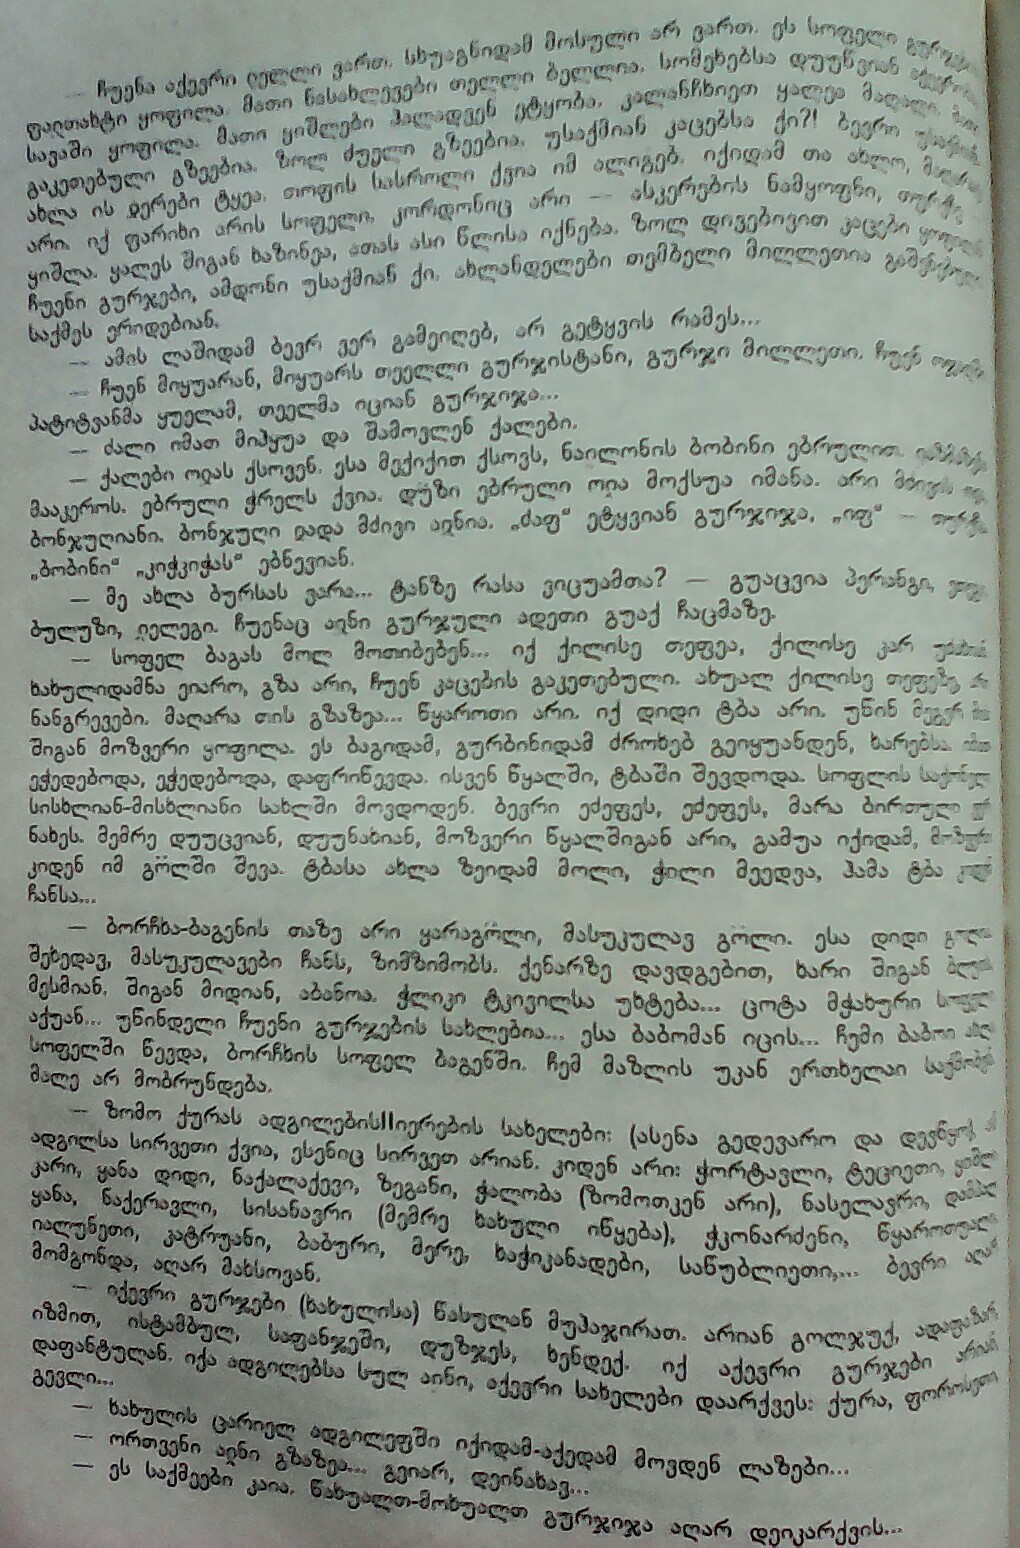 — ჩუენა აქევრი ჲელლი ვართ. სხუაგნიდამ მოსული არ ვართ. ეს სოფელი
ფაჲთახტი ყოფილა. მათი ნასახლევები თელლი ბელლია. სომეხებსა დუუწვიან
სავაში ყოფილა. მათი ყიშლები ჰალადვენ ეტყობა. კალანჩხიეთ ყალეა მაღალი,
გაკეთებული გზეებია. ზოლ ძუელი გზეებია. უსაქმიან კაცებსა ქი?! ბევრი
ახლა ის ჲერები ტყეა. თოფის სასროლი ქვია იმ ალიგებ. იქიდამ თა ახლო,
არი. იქ ფარიხი არის სოფელი, კორდონიც არი — ასკერების ნამყოფნი,
ყიშლა. ყალეს შიგან ხაზინეა, ათას ასი წლისა იქნება. ზოლ დივებივით კაცები
ჩუენი გურჯები, ამდონი უსაქმიან ქი. ახლანდელები თემბელი მილლეთია
საქმეს ერიდებიან.
— ამის ლაშიდამ ბევრ ვერ გამეიღებ, არ გეტყვის რამეს...
— ჩუენ მიყუარან, მიყუარს თეელლი გურჯისტანი, გურჯი მილლეთი. ჩუენ
პატიტვანმა ყუელამ, თეელმა იციან გურჯიჯა...
— ძალი იმათ მიჰყუა და შამოვლენ ქალები.
— ქალები ოჲას ქსოვენ. ესა მექიქით ქსოვს, ნაილონის ბობინი ებრულით
მააკეროს. ებრული ჭრელს ქვია. დუზი ებრული ოჲა მოქსუა იმანა. არი
ბონჯუღიანი. ბონჯუღი ჲადა მძივი აჲნია. „ძაფ“ ეტყვიან გურჯიჯა, „იფ“ —
„ბობინი“ „კიჭკიჭას“ ებნევიან.
— მე ახლა ბურსას ვარა... ტანზე რასა ვიცუამთა? — გუაცვია პერანგი,
ბულუზი, ჲელეგი. ჩუენაც აჲნი გურჯული ადეთი გუაქ ჩაცმაზე.
— სოფელ ბაგას მოლ მოთიბებენ... იქ ქილისე თეფეა, ქილისე კარ
ხახულიდამნა ეიარო, გზა არი, ჩუენ კაცების გაკეთებული. ახუალ ქილისე თეფეზე,
ნანგრევები. მაღარა თის გზაზეა... წყაროთი არი. იქ დიდი ტბა არი. უწინ მეგერ
შიგან მოზვერი ყოფილა. ეს ბაგიდამ, გურბინიდამ ძროხებ გეიყუანდენ, ხარებსა
ეჭედებოდა, ეჭედებოდა, დაფრიწევდა. ისვენ წყალში, ტბაში შევდოდა. სოფლის
სისხლიან-მისხლიანი სახლში მოვდოდენ. ბევრი ეძეფეს, ეძეფეს, მარა ბირთულ
ნახეს. მემრე დუუცვიან, დუუნახიან, მოზვერი წყალშიგან არი, გამუა იქიდამ,
კიდენ იმ გოლში შევა. ტბასა ახლა ზეიდამ მოლი, ჭილი მეედვა, ჰამა ტბა
ჩანსა...
— ბორჩხა-ბაგენის თაზე არი ყარაგოლი, მასუკულავ გოლი. ესა დიდი
შეხედავ, მასუკულავები ჩანს, ზიმზიმობს. ქენარზე დავდგებით, ხარი შიგან
მესმიან. შიგან მიდიან, აბანოა. ჭლიკი ტკივილსა უხტება... ცოტა მჭახური
აქუან... უწინდელი ჩუენი გურჯების სახლებია... ესა ბაბომან იცის... ჩემი ბაბოი
სოფელში წევდა, ბორჩხის სოფელ ბაგენში. ჩემ მაზლის უკან ერთხელაი
მალე არ მობრუნდება.
— ზომო ქურას ადგილების||იერების სახელები: (ასენა გედევარო და
ადგილსა სირვეთი ქვია, ესენიც სირვეთ არიან. კიდენ არი: ჭორტავლი, ტეციეთი,
კარი, ყანა დიდი, ნაქალაქევი, ზეგანი, ჭალობა (ზომოთკენ არი), ნასელავრი,
ყანა, ნაქერავლი, სისანავრი (მემრე ხახული იწყება), ჭკონარძენი,
იალუნეთი, კატრუანი, ბაბური, მერე, ხაჭიკანადები, საწუბლიეთი,... ბევრი
მომგონდა, აღარ მახსოვან.
— იქევრი გურჯები (ხახულისა) წასულან მუჰაჯირათ. არიან გოლჯუქ, ადაფაზარ,
იზმით, ისტამბულ, საფანჯეში, დუზჯეს, ხენდექ. იქ აქევრი გურჯები არიან
დაფანტულან. იქა ადგილებსა სულ აინი, აქევრი სახელები დაარქვეს: ქურა,
გევლი...
— ხახულის ცარიელ ადგილეფში იქიდამ-აქედამ მოვდენ ლაზები...
— ორთვენი აჲნი გზაზეა... გეიარ, დეინახავ...
— ეს საქმეები კაია. წახუალთ-მოხუალთ გურჯიჯა აღარ დეიკარქვის...